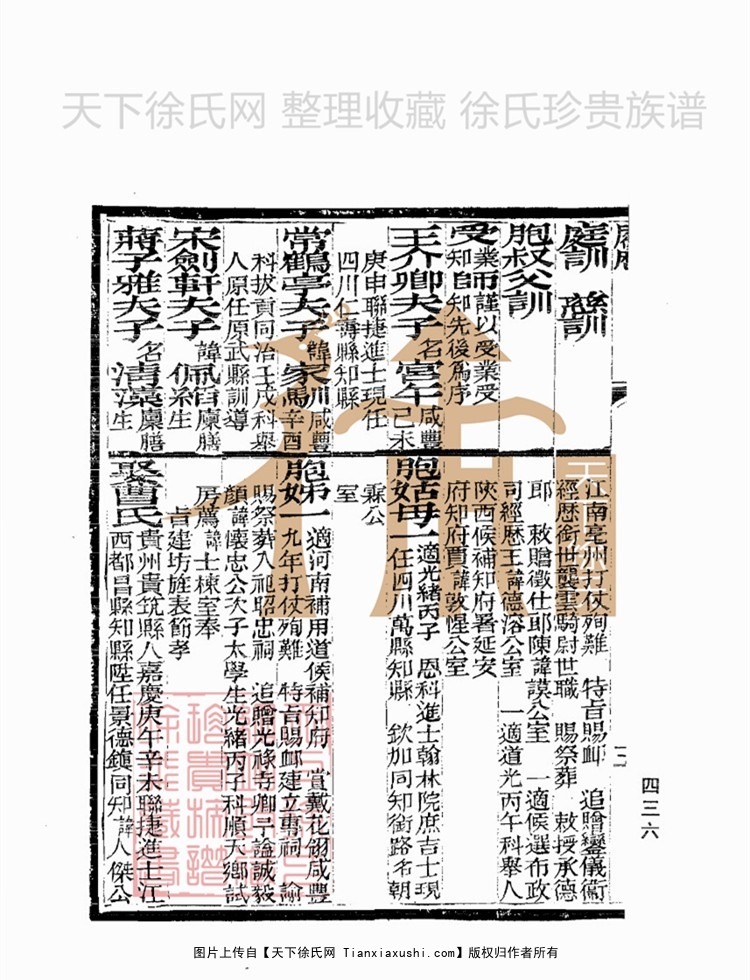 天下徐氏网 整理收藏 徐氏珍贵族谱
庭訓 慈訓
胞叔父訓
受業而謹以受業受
知自知先後爲序
王介卿夫子名宫午咸豐己未
庚申聯捷進士現任
四川仁壽縣知縣
常鶴亭夫子諱家馬辛酉咸豐
科拔貢同治壬戌科舉
人原任原武縣訓導
宋劍軒夫子諱佩紳廩膳生
蔣子雅夫子名清藻廩膳生
江南亳州打仗殉難 特旨賜卹 追贈鑾儀衞
經歷銜世襲雲騎尉世職 賜祭葬 敕授承德
郎 敕贈徵仕郎陳諱謨公室 一適候選布政
司經歷王諱德溶公室 一適道光丙午科舉人
陝西候補知府署延安
府知府賈諱敦惺公室
胞姑母一適光緒丙子 恩科進士翰林院庶吉士現
任四川萬縣知縣 欽加同知銜路名朝
霖公
室
胞弟一適河南補用道候補知府 賞戴花翎咸豐
九年打仗殉難 特旨賜卹建立專祠 諭
賜祭葬入祀昭忠祠 追贈光祿寺卿予謚誠毅
顏諱懷忠公次子太學生光緒丙子科順天鄉試
房薦諱士棟室奉
旨建坊旌表節孝
娶曹氏貴州貴筑縣人嘉慶庚午辛未聯捷進士江
西都昌縣知縣陞任景德鎮同知諱人傑公
四三六
图片上传自【天下徐氏网 Tianxiaxushi.com】版权归作者所有